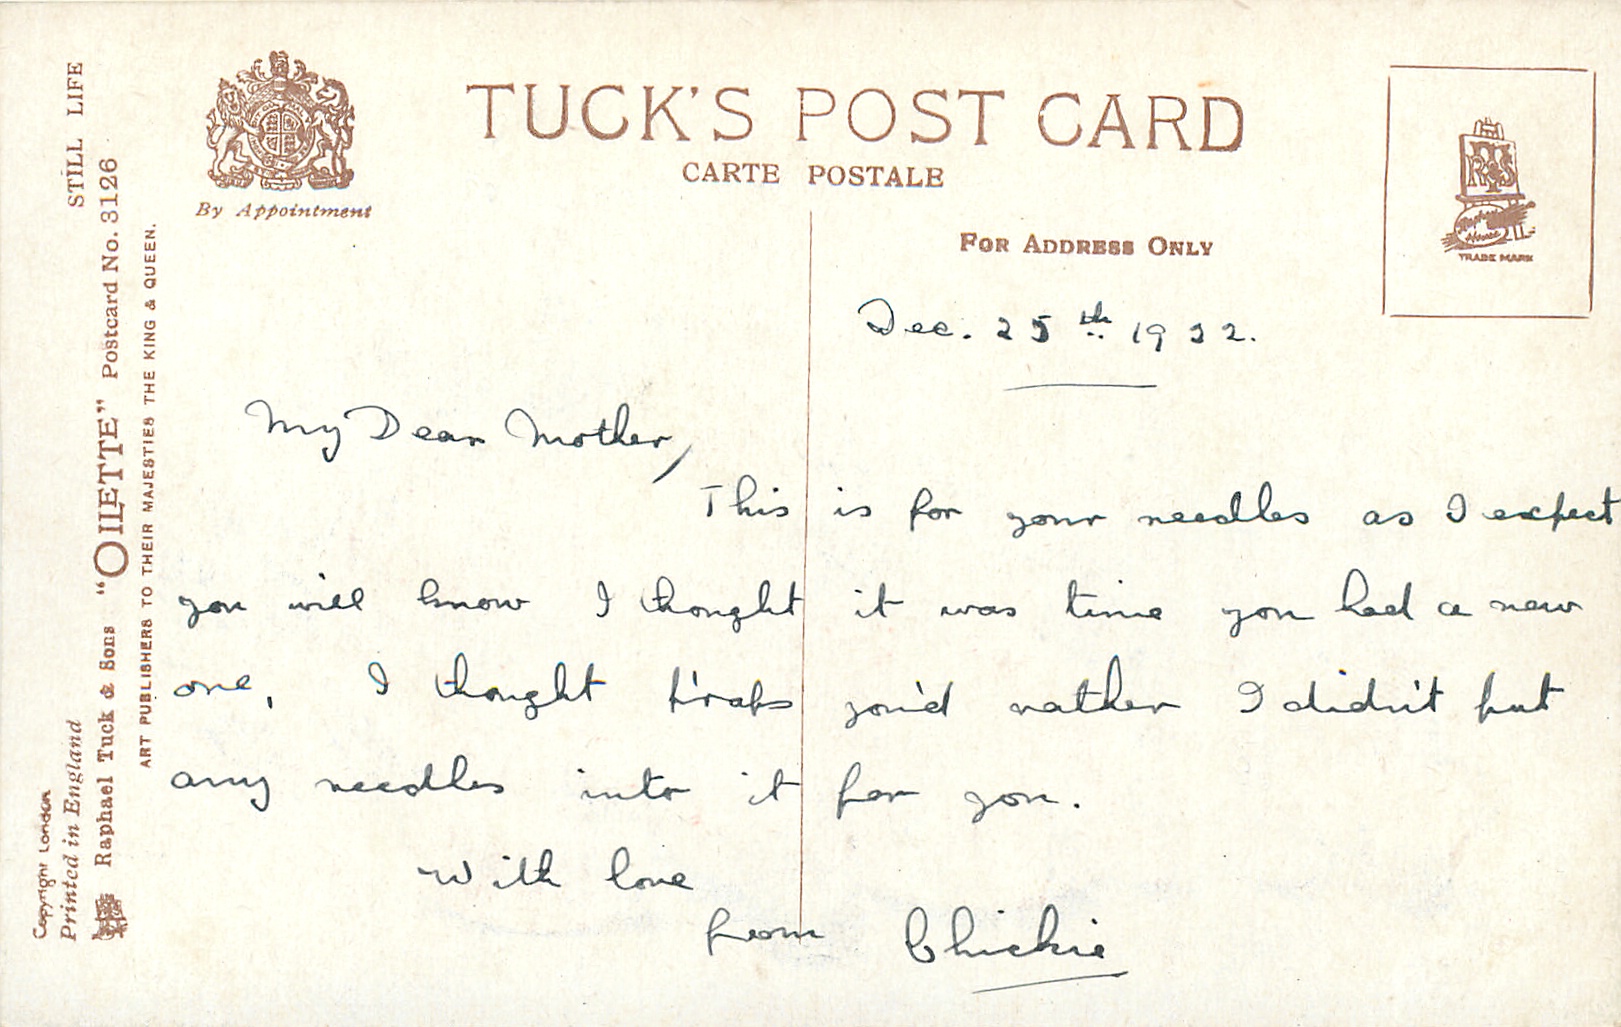 TUCK'S POST CARD
CARTE POSTALE
By Appointment
FOR ADDRESS ONLY
TRADE MARK
STILL LIFE
"OILETTE" Postcard No. 3126
Raphael Tuck & Sons
ART PUBLISHERS TO THEIR MAJESTIES THE KING & QUEEN.
Copyright London
Printed in England
Dec. 25th 1922.
My Dear Mother,
This is for your needles as I expect
you will know I thought it was time you had a new
one, I thought p'raps you'd rather I didn't put
any needles into it for you.
With love
from Chickie